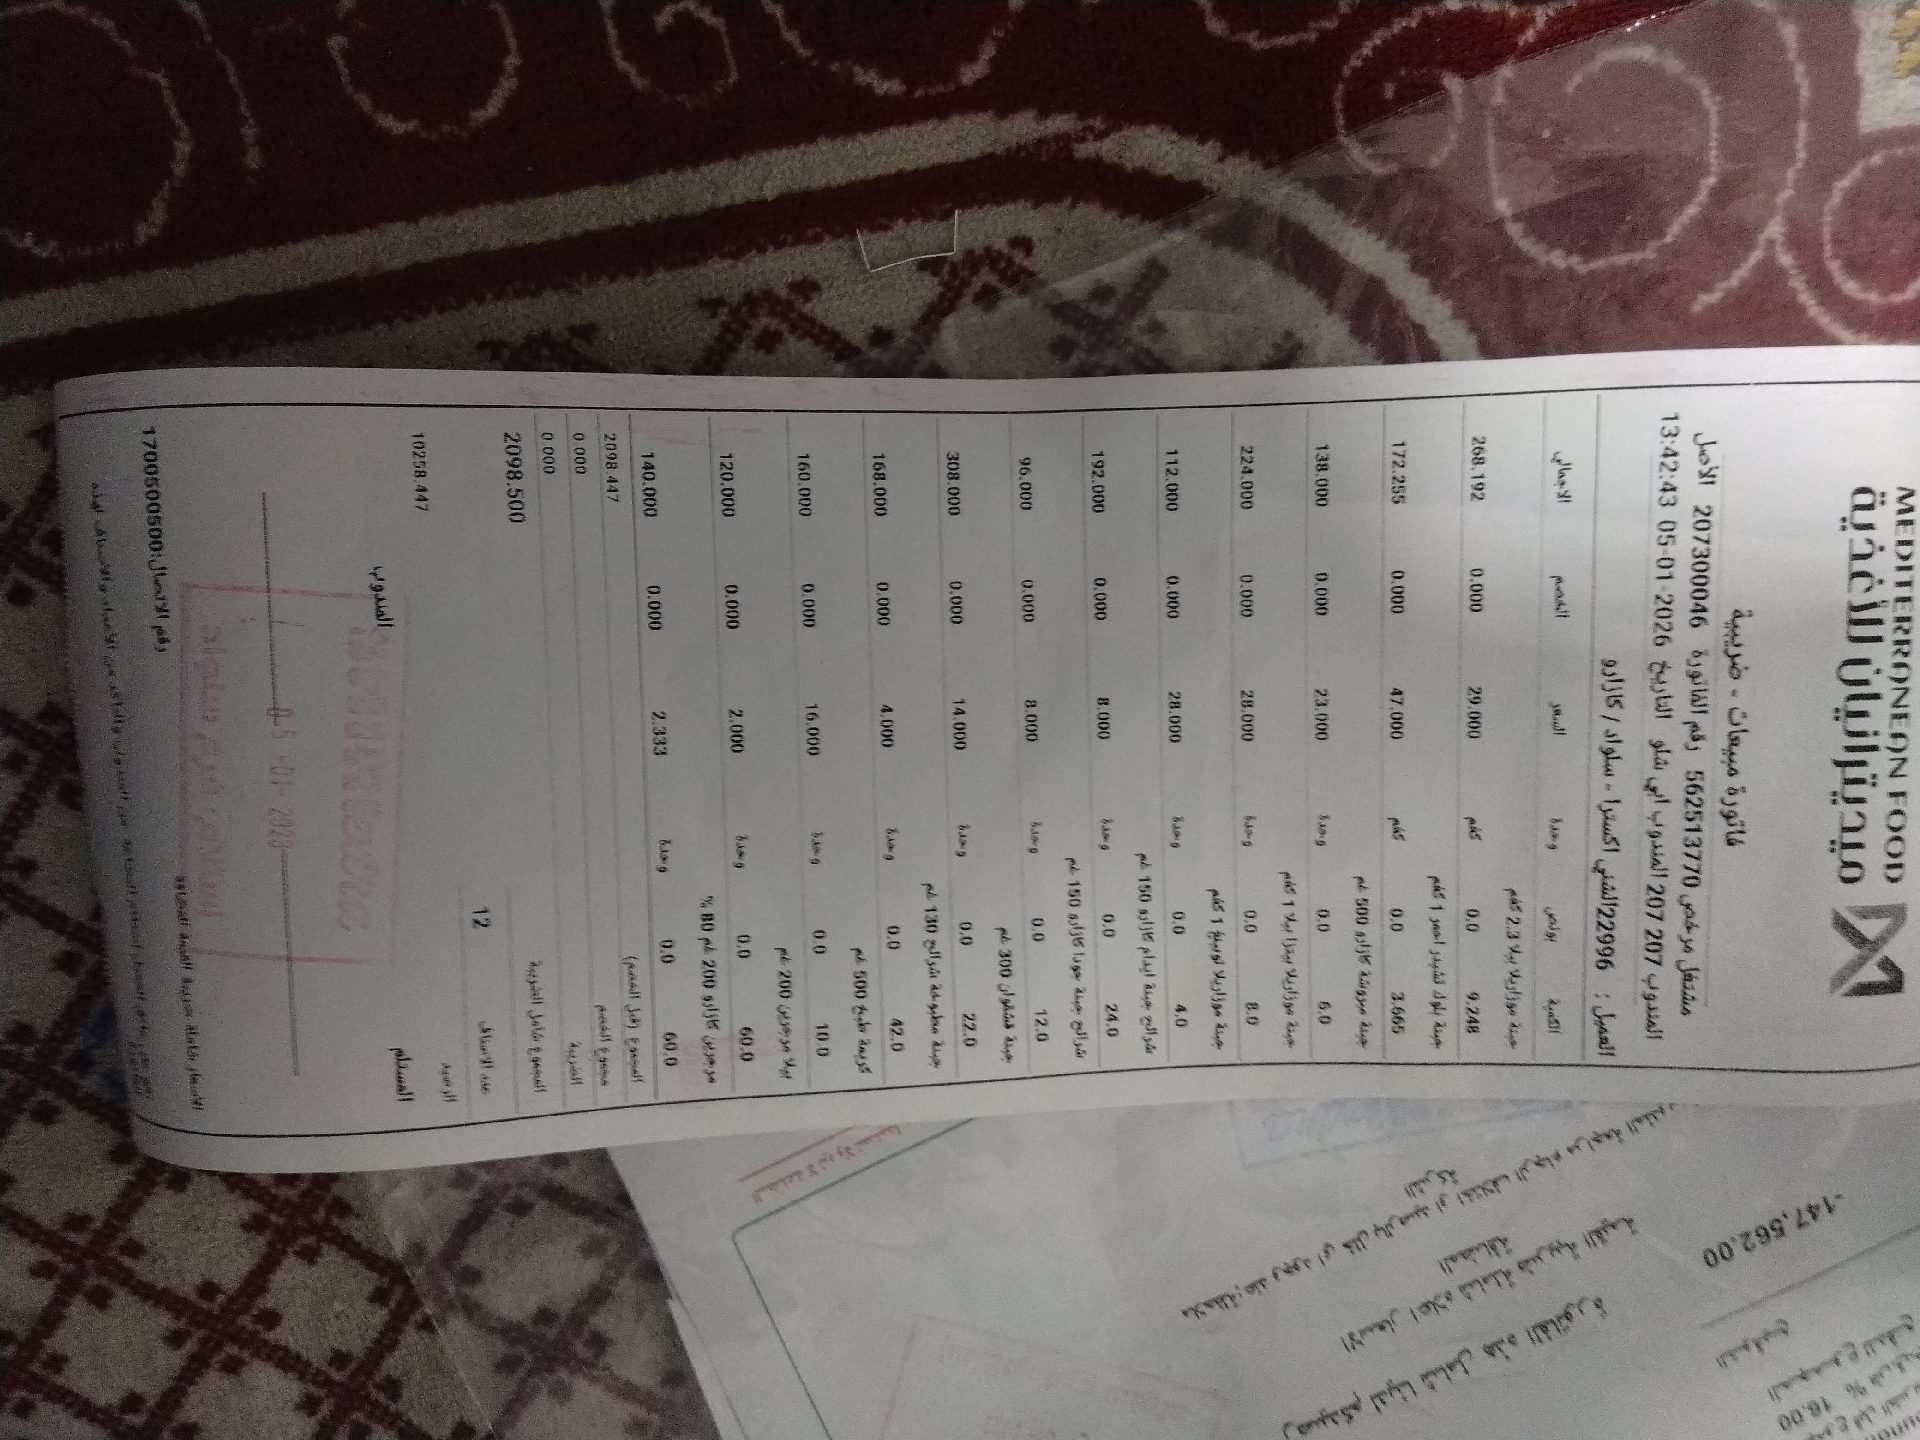 MEDITERRANEAN FOOD
ميديترانيان للأغذية
فاتورة مبيعات - ضريبية
مشتغل مرخص 562513770 رقم الفاتورة 207300046 الاصل
المندوب 207 207 المندوب ابي شلو التاريخ 2026-01-05 13:42:43
العميل : 22996الشني اكسترا - سلواد / كازارو
الكمية بونص وحدة السعر الخصم الاجمالي
جبنة موزاريلا بيلا 2.3 كغم
9.248 0.0 كغم 29.000 0.000 268.192
جبنة بلوك تشيدر احمر 1 كغم
3.665 0.0 كغم 47.000 0.000 172.255
جبنة مبروشة كازارو 500 غم
6.0 0.0 وحدة 23.000 0.000 138.000
جبنة موزاريلا بيتزا بيلا 1 كغم
8.0 0.0 وحدة 28.000 0.000 224.000
جبنة موزاريلا توبينغ 1 كغم
4.0 0.0 وحدة 28.000 0.000 112.000
شرائح جبنة ايدام كازارو 150 غم
24.0 0.0 وحدة 8.000 0.000 192.000
شرائح جبنة جودا كازارو 150 غم
12.0 0.0 وحدة 8.000 0.000 96.000
جبنة قشقوان 300 غم
22.0 0.0 وحدة 14.000 0.000 308.000
جبنة مطبوخة شرائح 130 غم
42.0 0.0 وحدة 4.000 0.000 168.000
كريمة طبخ 500 غم
10.0 0.0 وحدة 16.000 0.000 160.000
بيلا مرجرين 200 غم
60.0 0.0 وحدة 2.000 0.000 120.000
مرجرين كازارو 200 غم 80 %
60.0 0.0 وحدة 2.333 0.000 140.000
المجموع (قبل الخصم) 2098.447
مجموع الخصم 0.000
الضريبة 0.000
المجموع شامل الضريبة 2098.500
عدد الاصناف 12
الرصيد 10258.447
المستلم المندوب
05-01-202
فرع سلواد
الاسعار شاملة ضريبة القيمة المضافة
رقم الاتصال:1700500500
-147,562.00
التوقيع
16.00
رصيدكم لدينا شامل هذه الفاتورة
الاسعار اعلاه شاملة ضريبة القيمة
المضافة
الشركة